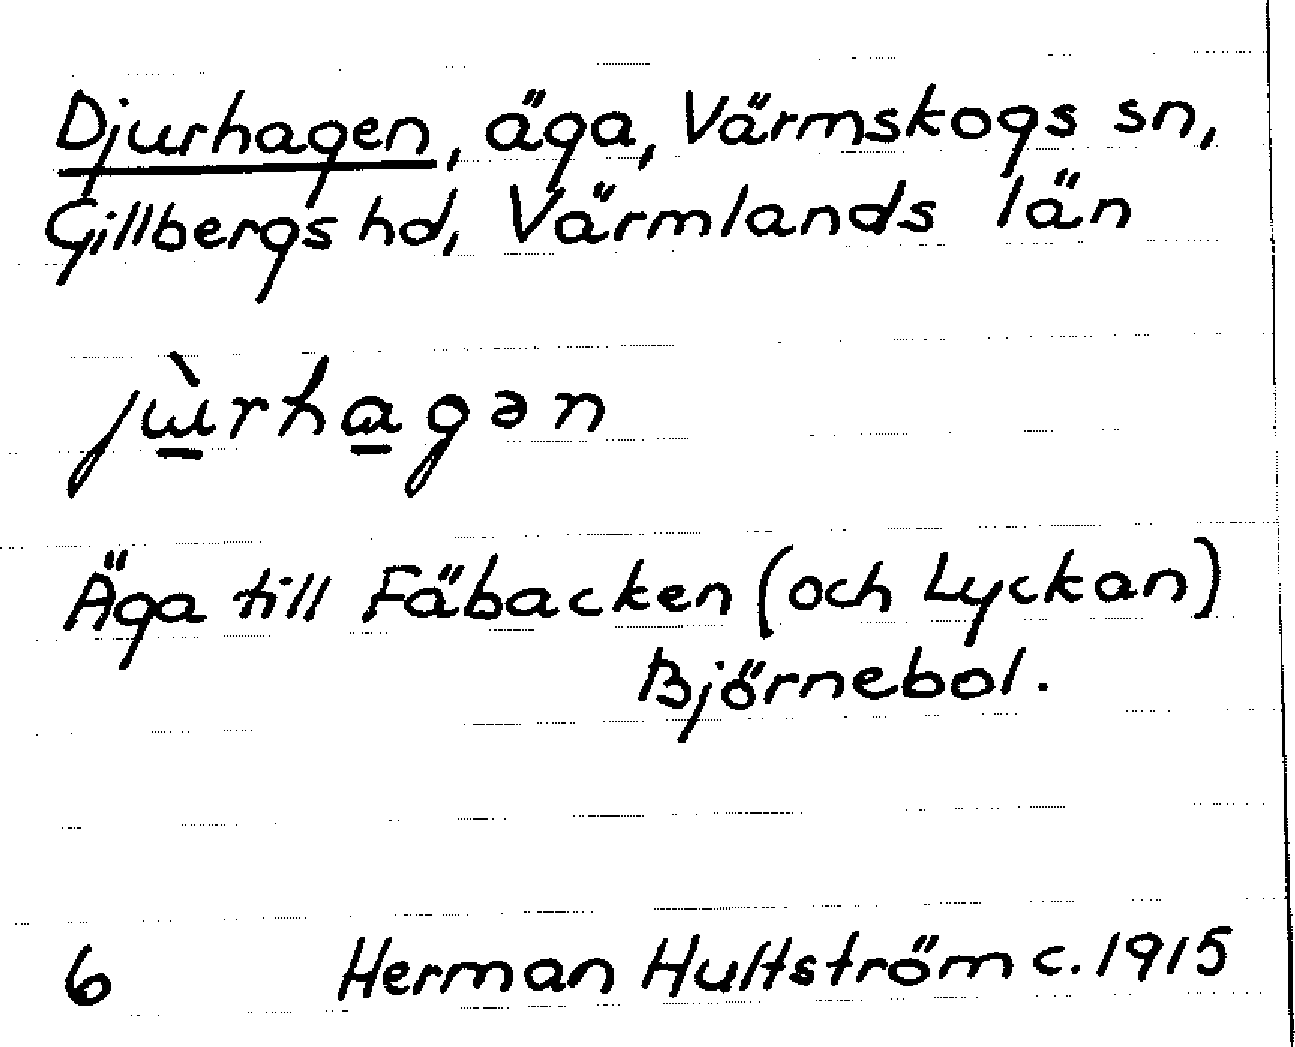 Djurhagen, äga, Värmskogs sn,
Gillbergs hd, Värmlands län
jɯ̲̀rha̲gən
Äga till Fäbacken (och Lyckan)
Björnebol.
6 Herman Hultström c. 1915